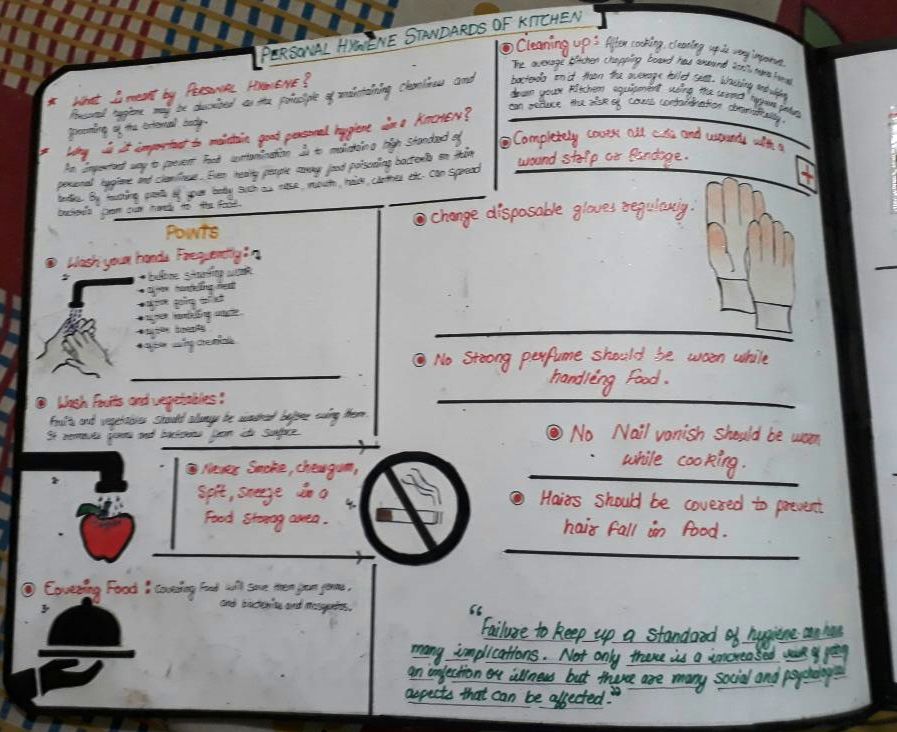 PERSONAL HYGIENE STANDARDS OF KITCHEN
* What is meant by PERSONAL HYGIENE?
Personal hygiene may be described as the principle of maintaining cleanliness and
grooming of the external body.
* Why is it important to maintain good personal hygiene in a KITCHEN?
An important way to prevent Food contamination is to maintain a high standard of
personal hygiene and cleanliness. Even healthy people carry food poisoning bacteria on their
bodies. By touching parts of your body such as nose, mouth, hair, clothes etc. can spread
bacteria from our hands to the food.
POINTS
Wash your hands Frequently:
1.
→ before starting work
→ after handling meat
→ after going toilet
→ after handling waste
→ after breaks
→ after using chemicals
Wash Fruits and vegetables:
Fruits and vegetables should always be washed before using them.
It removes germs and bacterias from its surface
2.
Never Smoke, chewgum,
Spit, sneeze in a
Food storag area.
4.
Covering Food: Covering Food will save them from germs,
and bacterias and mosquitos.
3.
Cleaning up: After cooking, cleaning up is very important.
The average kitchen chopping board has around 200% more faecal
bacteria on it than the average toilet seat. Washing and wiping
down your kitchen equipment using the correct hygiene
can reduce the risk of cross contamination dramatically.
Completely cover all cuts and wounds with a
wound strip or Bandage.
Change disposable gloves regularly.
No Strong perfume should be worn while
handling Food.
No Nail vanish should be worn
while cooking.
Hairs should be covered to prevent
hair fall in food.
"Failure to keep up a standard of hygiene can have
many implications. Not only there is a increased risk of
an infection or illness but there are many social and psychological
aspects that can be affected."